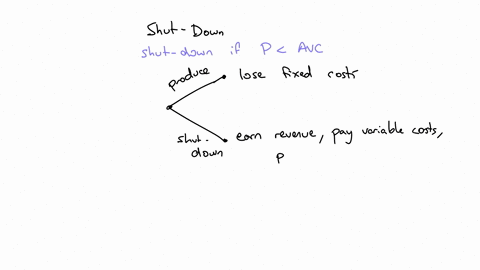 Shut-Down
shut-down if P < AVC
produce
lose fixed costs
shut-
down
earn revenue, pay variable costs,
p